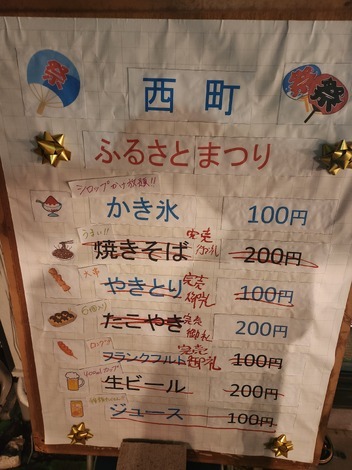 祭
祭
祭
西町
ふるさとまつり
シロップかけ放題!!
かき氷 100円
うまい!!
焼きそば 完売 御礼 200円
大串
やきとり 完売 御礼 100円
6個入り
たこやき 完売 御礼 200円
フランクフルト 完売! 御礼 100円
生ビール 200円
ジュース 100円